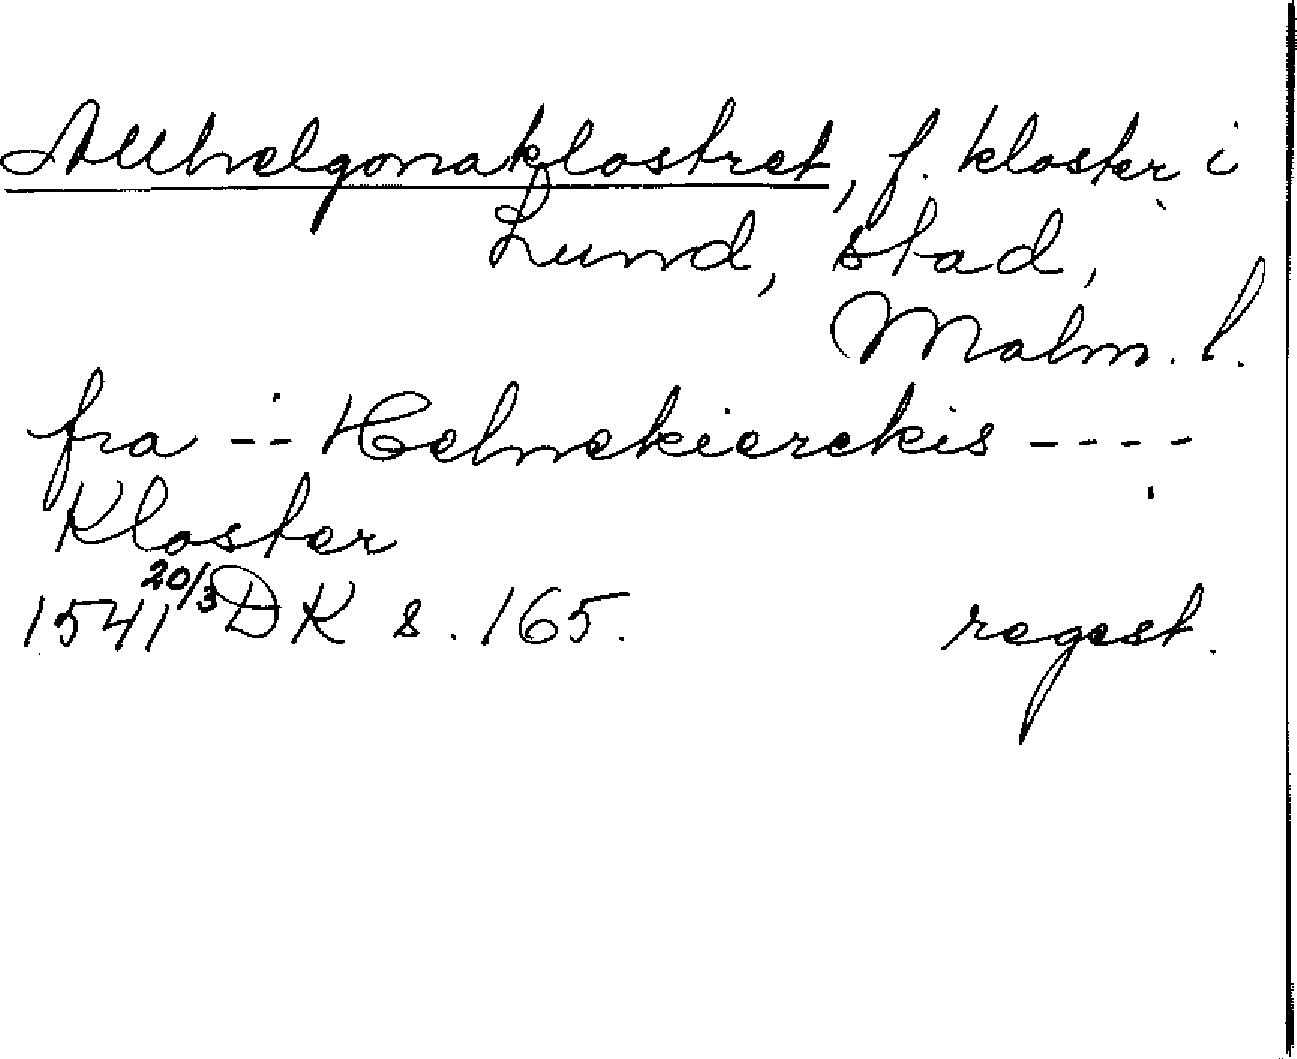 Allhelgonaklostret, f. kloster i
Lund, stad,
Malm. l.
fra -- Helnekierekis ----
Kloster
1541 20/3 DK s. 165. regest.